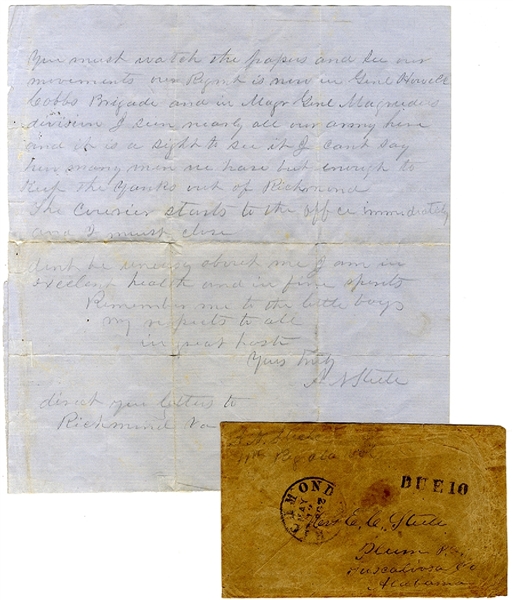 You must watch the papers and see our
movements our Rgmt is now in Genl Howell
Cobbs Brigade and in Majr Genl Magruders
division I seen nearly all our army here
and it is a sight to see it I cant say
how many men we have but enough to
keep the Yanks out of Richmond
The Courier starts to the office immediately
and I must close
Aint be uneasy about me I am in
health and in fine spirits
Remember me to the little boys
my respects to all
in great haste
Yours truly
A N Steele
direct your letters to
Richmond Va
Steele
Ala
RICHMOND
MAY
DUE 10
Rev. E. C. Steele
Plum
Tuscaloosa Co
Alabama